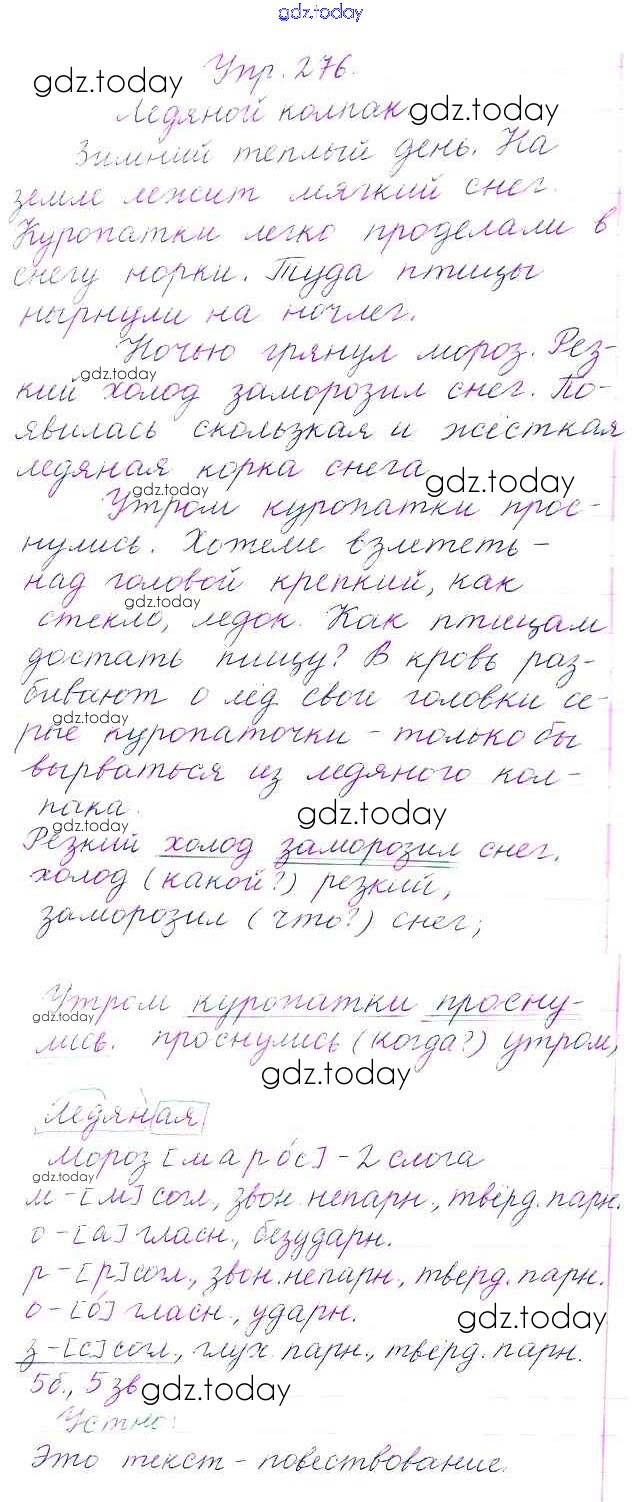 gdz.today
Упр. 276.
gdz.today
Ледяной колпак gdz.today
Зимний теплый день. На
земле лежит мягкий снег.
Куропатки легко проделали в
снегу норки. Туда птицы
нырнули на ночлег.
Ночью грянул мороз. Рез-
gdz.today
кий холод заморозил снег. По-
явилась скользкая и жёсткая
ледяная корка снега gdz.today
gdz.today
Утром куропатки прос-
нулись. Хотели взлететь –
над головой крепкий, как
gdz.today
стекло, ледок. Как птицам
достать пищу? В кровь раз-
бивают о лёд свои головки се-
gdz.today
рые куропаточки – только бы
вырваться из ледяного кол-
пака. gdz.today
gdz.today
Резкий холод заморозил снег.
холод (какой?) резкий,
заморозил (что?) снег;
Утром куропатки просну-
gdz.today
лись. проснулись (когда?) утром,
gdz.today
Ледяная
Мороз [марóс] - 2 слога
gdz.today
м - [м] согл., звон. непарн., твёрд. парн.
о - [а] гласн., безударн.
р - [р] согл., звон. непарн., тверд. парн.
о - [ó] гласн., ударн. gdz.today
з - [с] согл., глух. парн., твёрд. парн.
5б., 5 зв gdz.today
Устно:
Это текст – повествование.